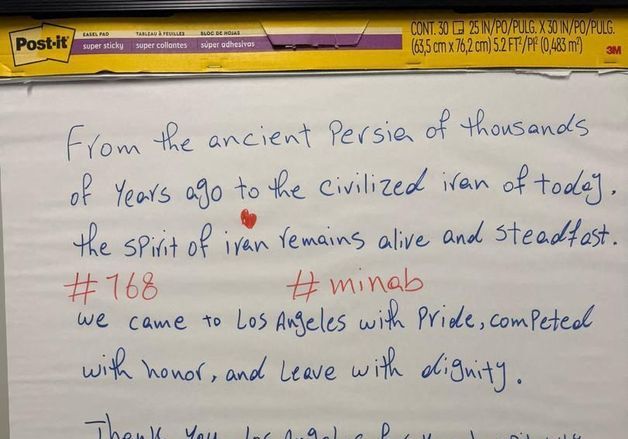 Post-it
EASEL PAD TABLEAU À FEUILLES BLOC DE HOJAS
super sticky super collantes súper adhesivas
CONT. 30 25 IN/PO/PULG. X 30 IN/PO/PULG.
(63,5 cm x 76,2 cm) 5.2 FT²/PI² (0,483 m²)
3M
From the ancient Persia of thousands
of years ago to the civilized iran of today.
the spirit of iran remains alive and steadfast.
#168 #minab
we came to Los Angeles with Pride, competed
with honor, and Leave with dignity.
Thank you Los Angel